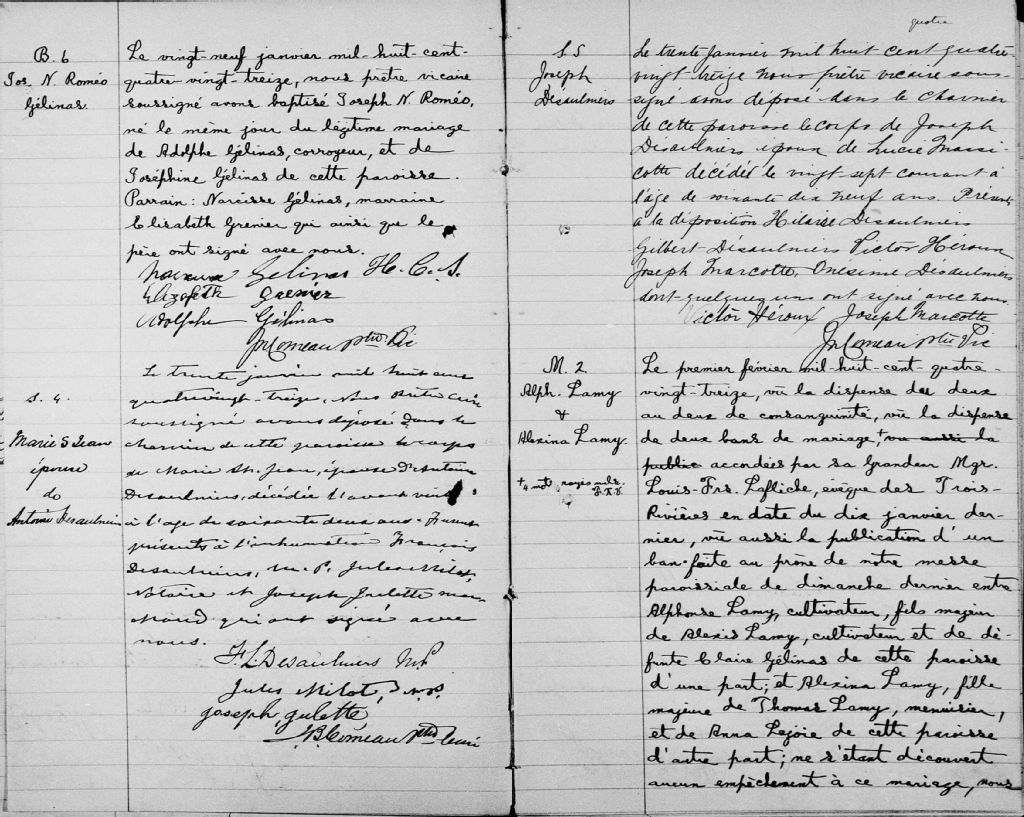 B. 6
Jos. N. Roméo
Gélinas.
Le vingt-neuf janvier mil-huit-cent-
quatre-vingt-treize, nous prêtre vicaire
soussigné avons baptisé Joseph N. Roméo,
né le même jour du légitime mariage
de Adolphe Gélinas, corroyeur, et de
Joséphine Gélinas de cette paroisse.
Parrain: Narcisse Gélinas, marraine
Elisabeth Grenier qui ainsi que le
père ont signé avec nous.
Gélinas H. C. S.
Elizabeth Grenier
Adolphe Gélinas
Comeau ptre Vic
S. 4.
Marie S Jean
épouse
de
Antoine Desaulniers
Le trente janvier mil huit cent
quatrevingt-treize, Nous Prêtre curé
soussigné avons déposé dans le
charnier de cette paroisse le corps
de Marie St. Jean, épouse d'Antoine
Desaulniers, décédée l'avant veille
à l'age de soixante deux ans. Furent
présents à l'inhumation François
Desaulniers, M. P. Jules Milot,
Notaire et Joseph Gelette mar-
chand qui ont signé avec
nous.
F. L. Desaulniers M.P.
Jules Milot, N.P.
Joseph gelette,
Comeau Ptre Curé
quatre
S. 5
Joseph
Désaulniers
Le trente Janvier mil huit cent quatre
vingt-treize nous prêtre vicaire sous-
signé avons déposé dans le charnier
de cette paroisse le corps de Joseph
Désaulniers époux de Lucie Massi-
cotte décédée le vingt-sept courant à
l'âge de soixante dix neuf ans. Présents
à la déposition Hilaire Desaulniers
Gilbert Desaulniers Victor Héroux
Joseph Marcotte, Onésime Désaulniers
dont quelques uns ont signé avec nous
Victor Héroux Joseph Marcotte
Comeau ptre Vic
M. 2.
Alph. Lamy
&
Alexina Lamy.
+ 4 mots rayés nuls.
Le premier février mil-huit-cent-quatre-
vingt-treize, vu la dispense du deux
au deux de consanguinité, vu la dispense
de deux bans de mariage, + vu aussi la
public accordées par sa Grandeur Mgr.
Louis-Frs. Laflèche, évêque des Trois-
Rivières en date du dix janvier der-
nier, vu aussi la publication d'un
ban faite au prône de notre messe
paroissiale de dimanche dernier entre
Alphonse Lamy, cultivateur, fils majeur
de Alexis Lamy, cultivateur et de dé-
funte Claire Gélinas de cette paroisse
d'une part; et Alexina Lamy, fille
majeure de Thomas Lamy, menuisier,
et de Anna Lejoie de cette paroisse
d'autre part; ne s'étant découvert
aucun empêchement à ce mariage, nous